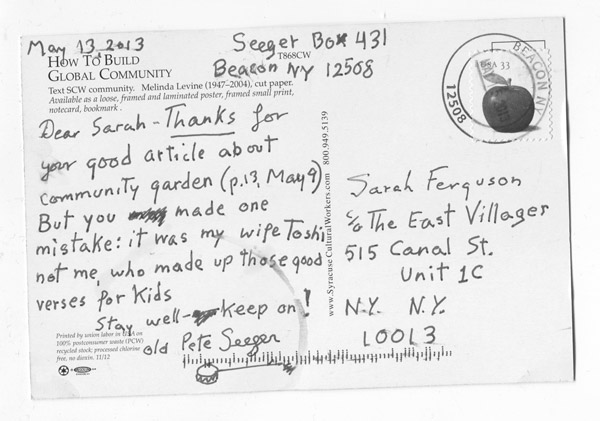 May 13, 2013
Seeger Box 431
Beacon NY 12508
HOW TO BUILD
GLOBAL COMMUNITY
T868CW
Text SCW community. Melinda Levine (1947–2004), cut paper.
Available as a loose, framed and laminated poster, framed small print,
notecard, bookmark.
USA 33
BEACON NY
12508
Dear Sarah - Thanks for
your good article about
community garden (p.13, May 9)
But you made one
mistake: it was my wife Toshi,
not me, who made up those good
verses for kids
Stay well- keep on!
old Pete Seeger
Printed by union labor in USA on
100% postconsumer waste (PCW)
recycled stock; processed chlorine
free, no dioxin. 11/12
www.SyracuseCulturalWorkers.com 800.949.5139
Sarah Ferguson
c/o The East Villager
515 Canal St.
Unit 1C
N.Y. N.Y.
10013